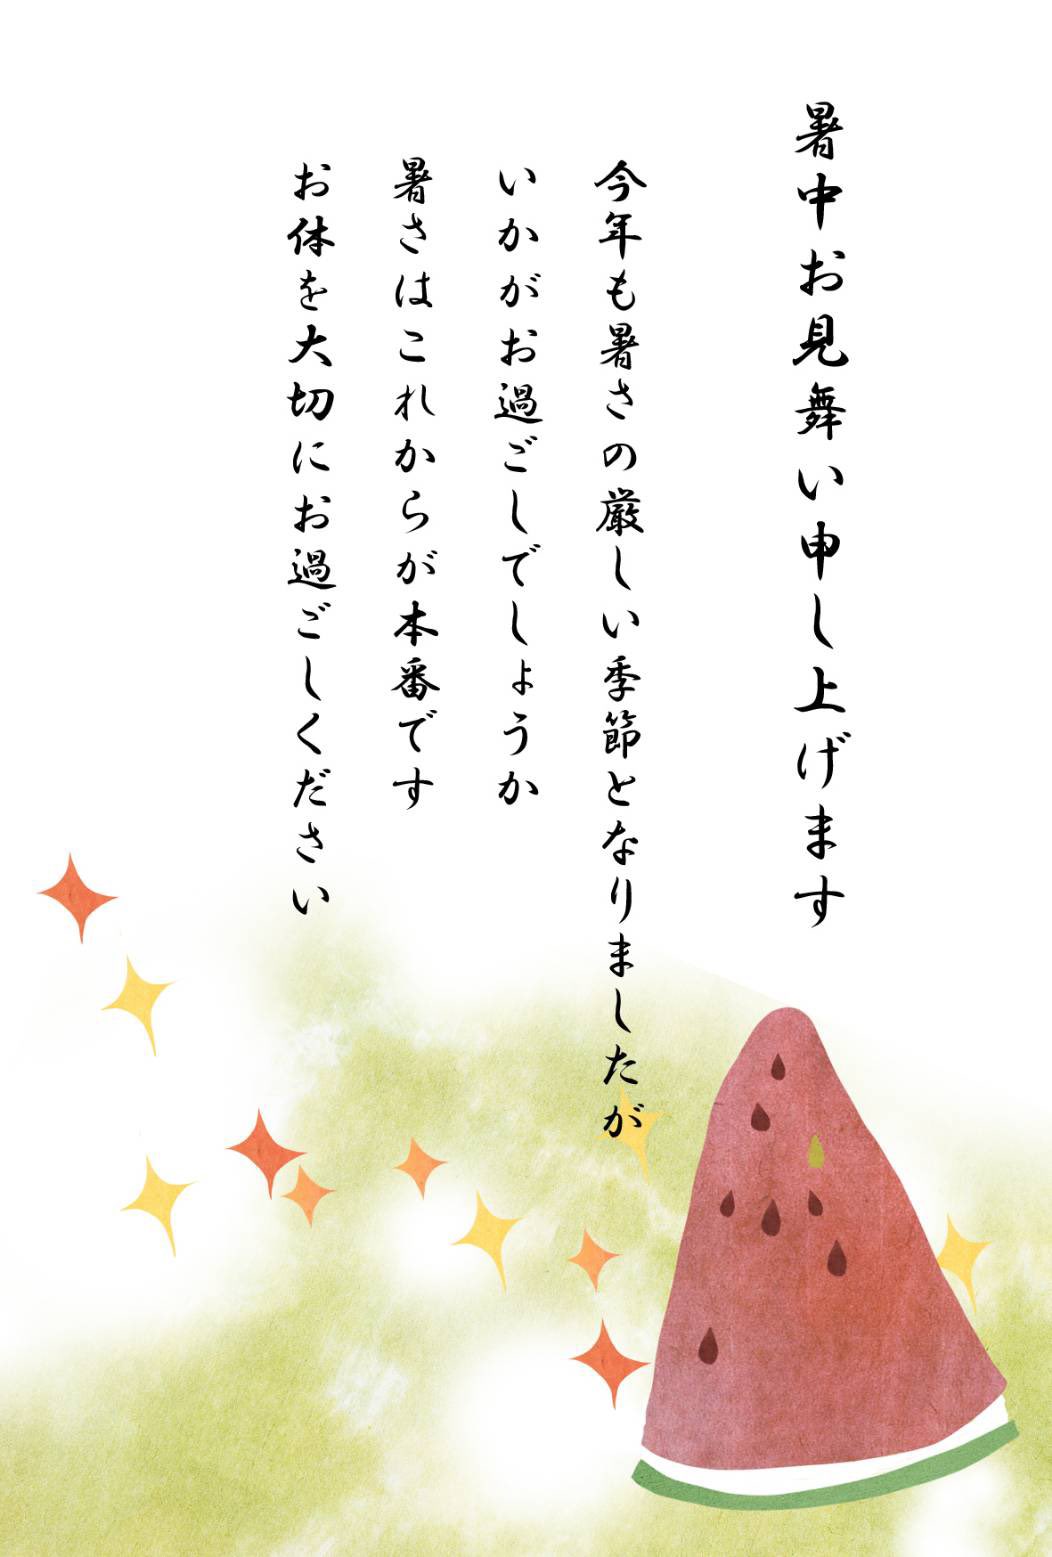 暑中お見舞い申し上げます
今年も暑さの厳しい季節となりましたが
いかがお過ごしでしょうか
暑さはこれからが本番です
お体を大切にお過ごしください